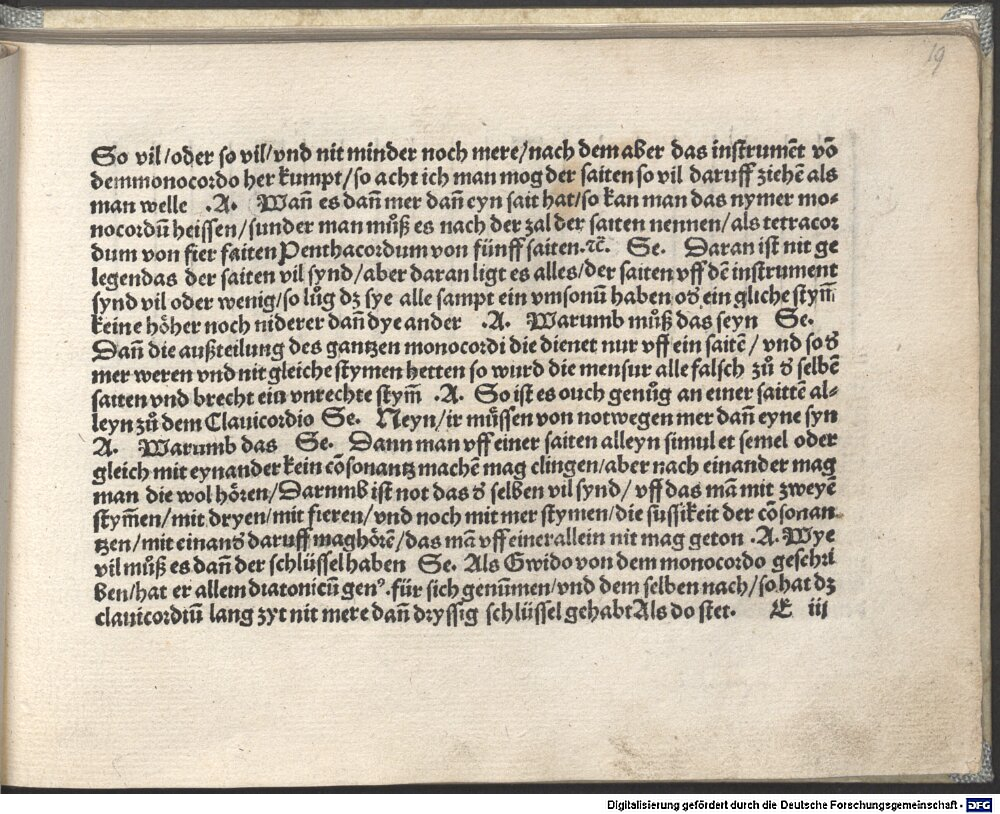 19
So vil/oder so vil/vnd nit minder noch mere/nach dem aber das instrumēt vō
demmonocordo her kumpt/so acht ich man mog der saiten so vil daruff ziehē als
man welle .A. Wañ es dañ mer dañ eyn sait hat/so kan man das nymer mo-
nocordū heissen/sunder man můß es nach der zal der saiten nennen/als tetracor
dum von fier saiten Penthacordum von fünff saiten.ꝛc̄. Se. Daran ist nit ge
legendas der saiten vil synd/aber daran ligt es alles/der saiten vff dē instrument
synd vil oder wenig/so lůg dz sye alle sampt ein vmsonū haben oð ein gliche stym̄
keine höher noch niderer dañ dye ander .A. Warumb můß das seyn Se.
Dañ die außteilung des gantzen monocordi die dienet nur vff ein saitē/ vnd so ð
mer weren vnd nit gleiche stymen hetten so wurd die mensur alle falsch zů ð selbē
saiten vnd brecht ein vnrechte stym̄ .A. So ist es ouch genůg an einer saittē al-
leyn zů dem Clauicordio Se. Neyn/ir müssen von notwegen mer dañ eyne syn
A. Warumb das Se. Dann man vff einer saiten alleyn simul et semel oder
gleich mit eynander kein cōsonantz machē mag clingen/aber nach einander mag
man die wol hören/Darnmb ist not das ð selben vil synd/ vff das mā mit zweyē
stym̄en/mit dryen/mit fieren/vnd noch mit mer stymen/die sussikeit der cōsonan
tzen/mit einanð daruff maghörē/das mā vff einerallein nit mag geton .A. Wye
vil můß es dañ der schlüssel haben Se. Als Gwido von dem monocordo geschri
ben/hat er allem diatonicū genꝰ.für sich genūmen/vnd dem selben nach/so hat dz
clauicordiū lang zyt nit mere dañ dryssig schlüssel gehabt Als do stet. E iii
Digitalisierung gefördert durch die Deutsche Forschungsgemeinschaft - DFG